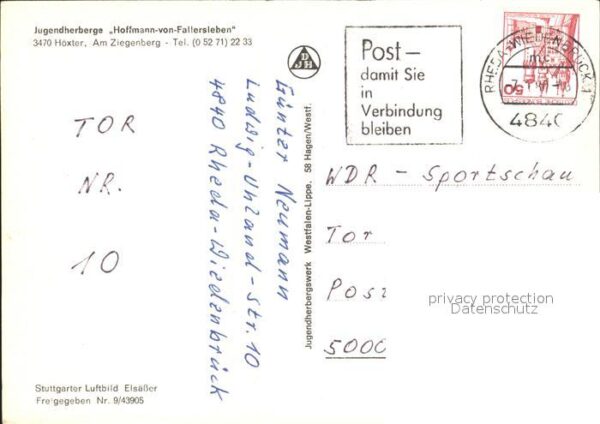 Jugendherberge „Hoffmann-von-Fallersleben"
3470 Höxter, Am Ziegenberg - Tel. (0 52 71) 22 33
TOR
NR.
10
Stuttgarter Luftbild Elsäßer
Freigegeben Nr. 9/43905
Günter Neumann
Ludwig-Uhland-Str. 10
4840 Rheda-Wiedenbrück
Jugendherbergswerk Westfalen-Lippe. 58 Hagen/Westf.
DJH
Post –
damit Sie
in
Verbindung
bleiben
RHEDA-WIEDENBRÜCK 1
mc
4840
50
WDR - Sportschau
Tor
Post
5000
privacy protection
Datenschutz